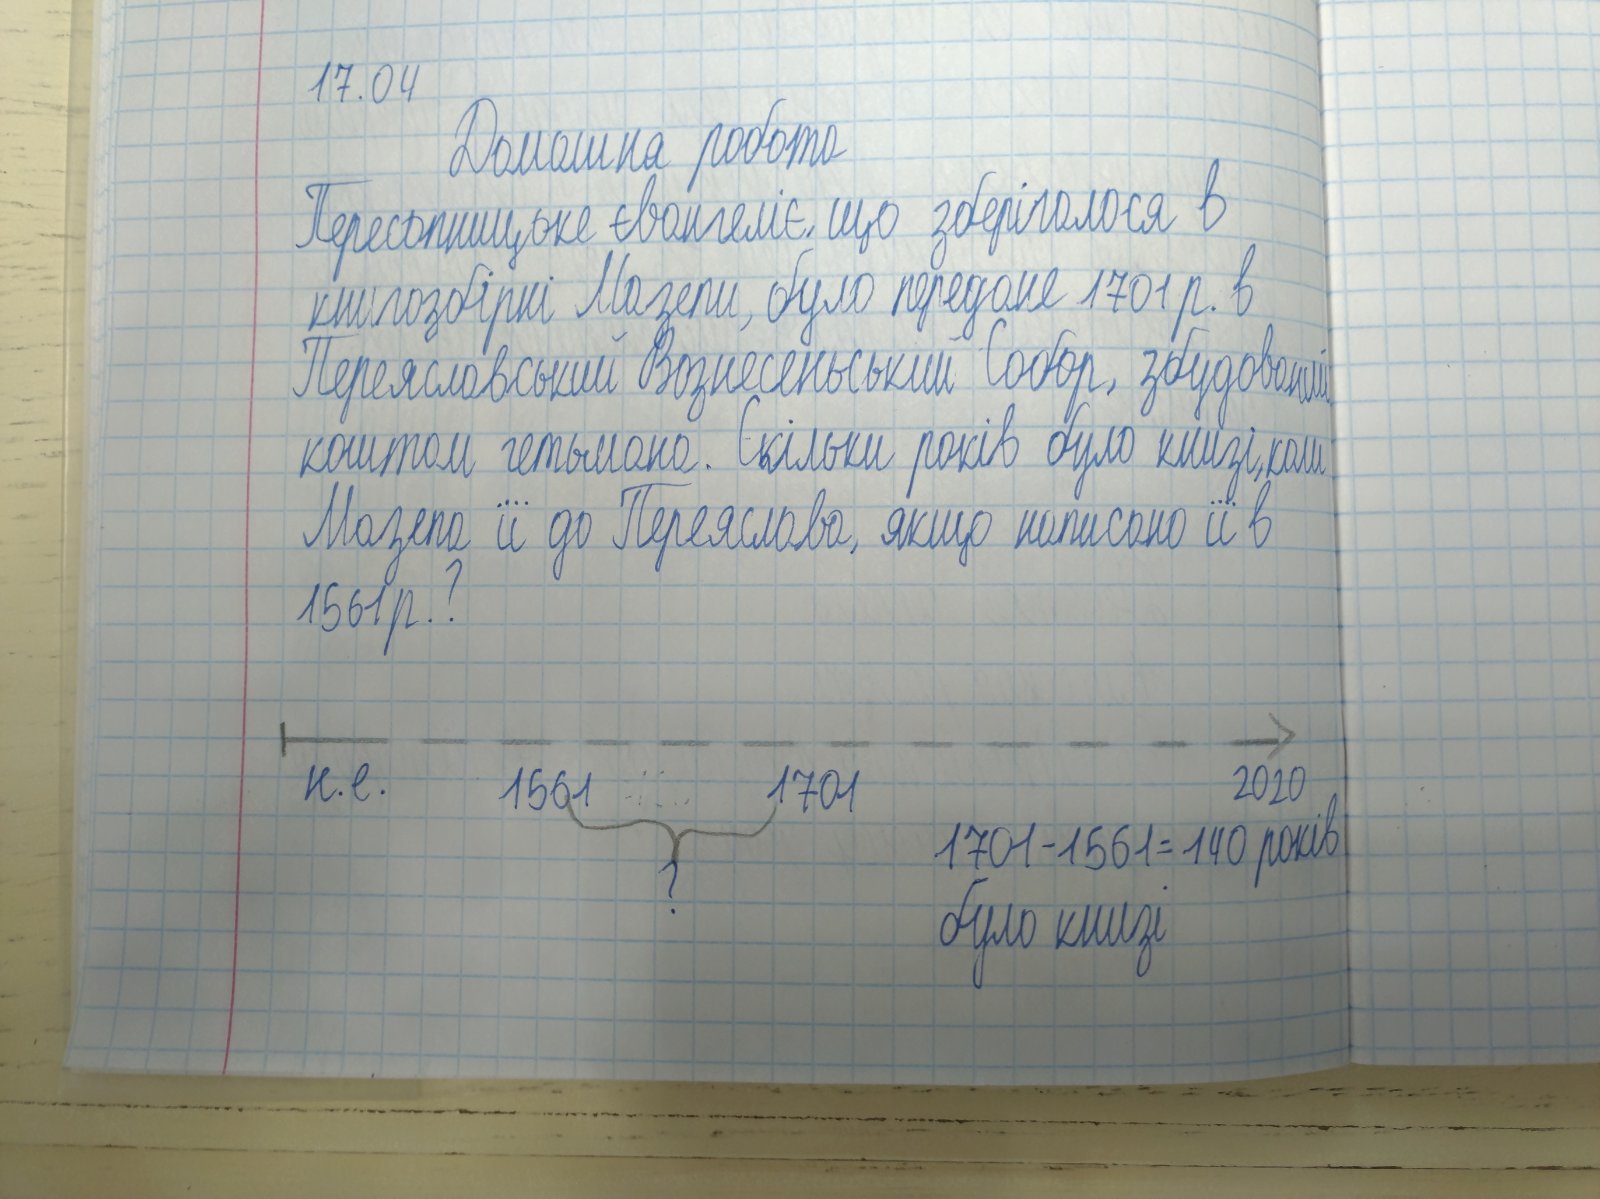 17.04
Домашна робота
Пересопницьке Євангеліє, що зберігалося в
книгозбірні Мазепи, було передане 1701 р. в
Переяславський Вознесеньський Собор, збудований
коштом гетьмана. Скільки років було книзі, коли
Мазепа її до Переяслава, якщо написано її в
1561 р.?
н.е. 1561 1701 2020
?
1701-1561=140 років
було книзі